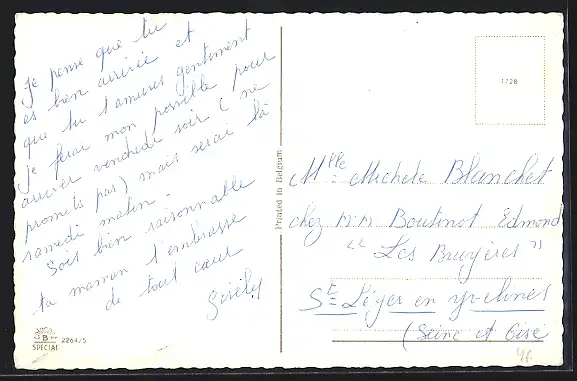 Je pense que tu
es bien arrivée et
que tu t'amuses gentiment
je ferai mon possible pour
arriver vendredi soir (ne
promets pas) mais serai là
samedi matin.
Sois bien raisonnable
ta maman t'embrasse
de tout cœur
2264/5
SPECIAL
Printed in Belgium
1728
Mlle Michele Blanchet
chez M.M. Boutinot Edmond
"Les Bruyères"
St Léger en Yvelines
(Seine et Oise